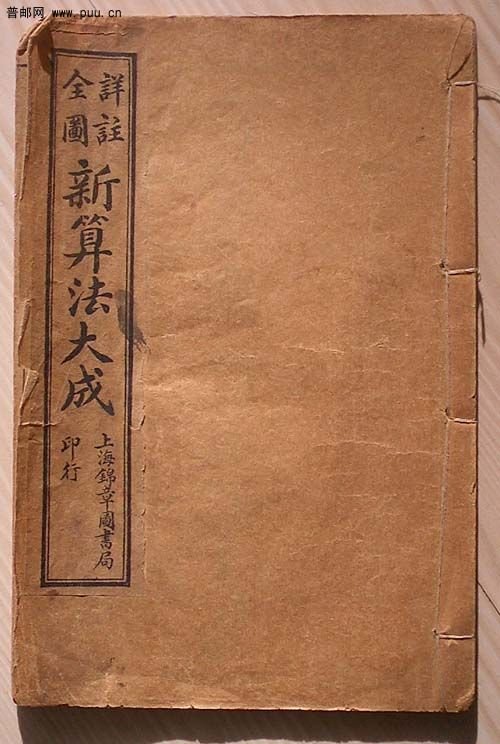 普邮网 www.puu.cn
詳註
全圖
新算法大成
上海錦章圖書局
印行